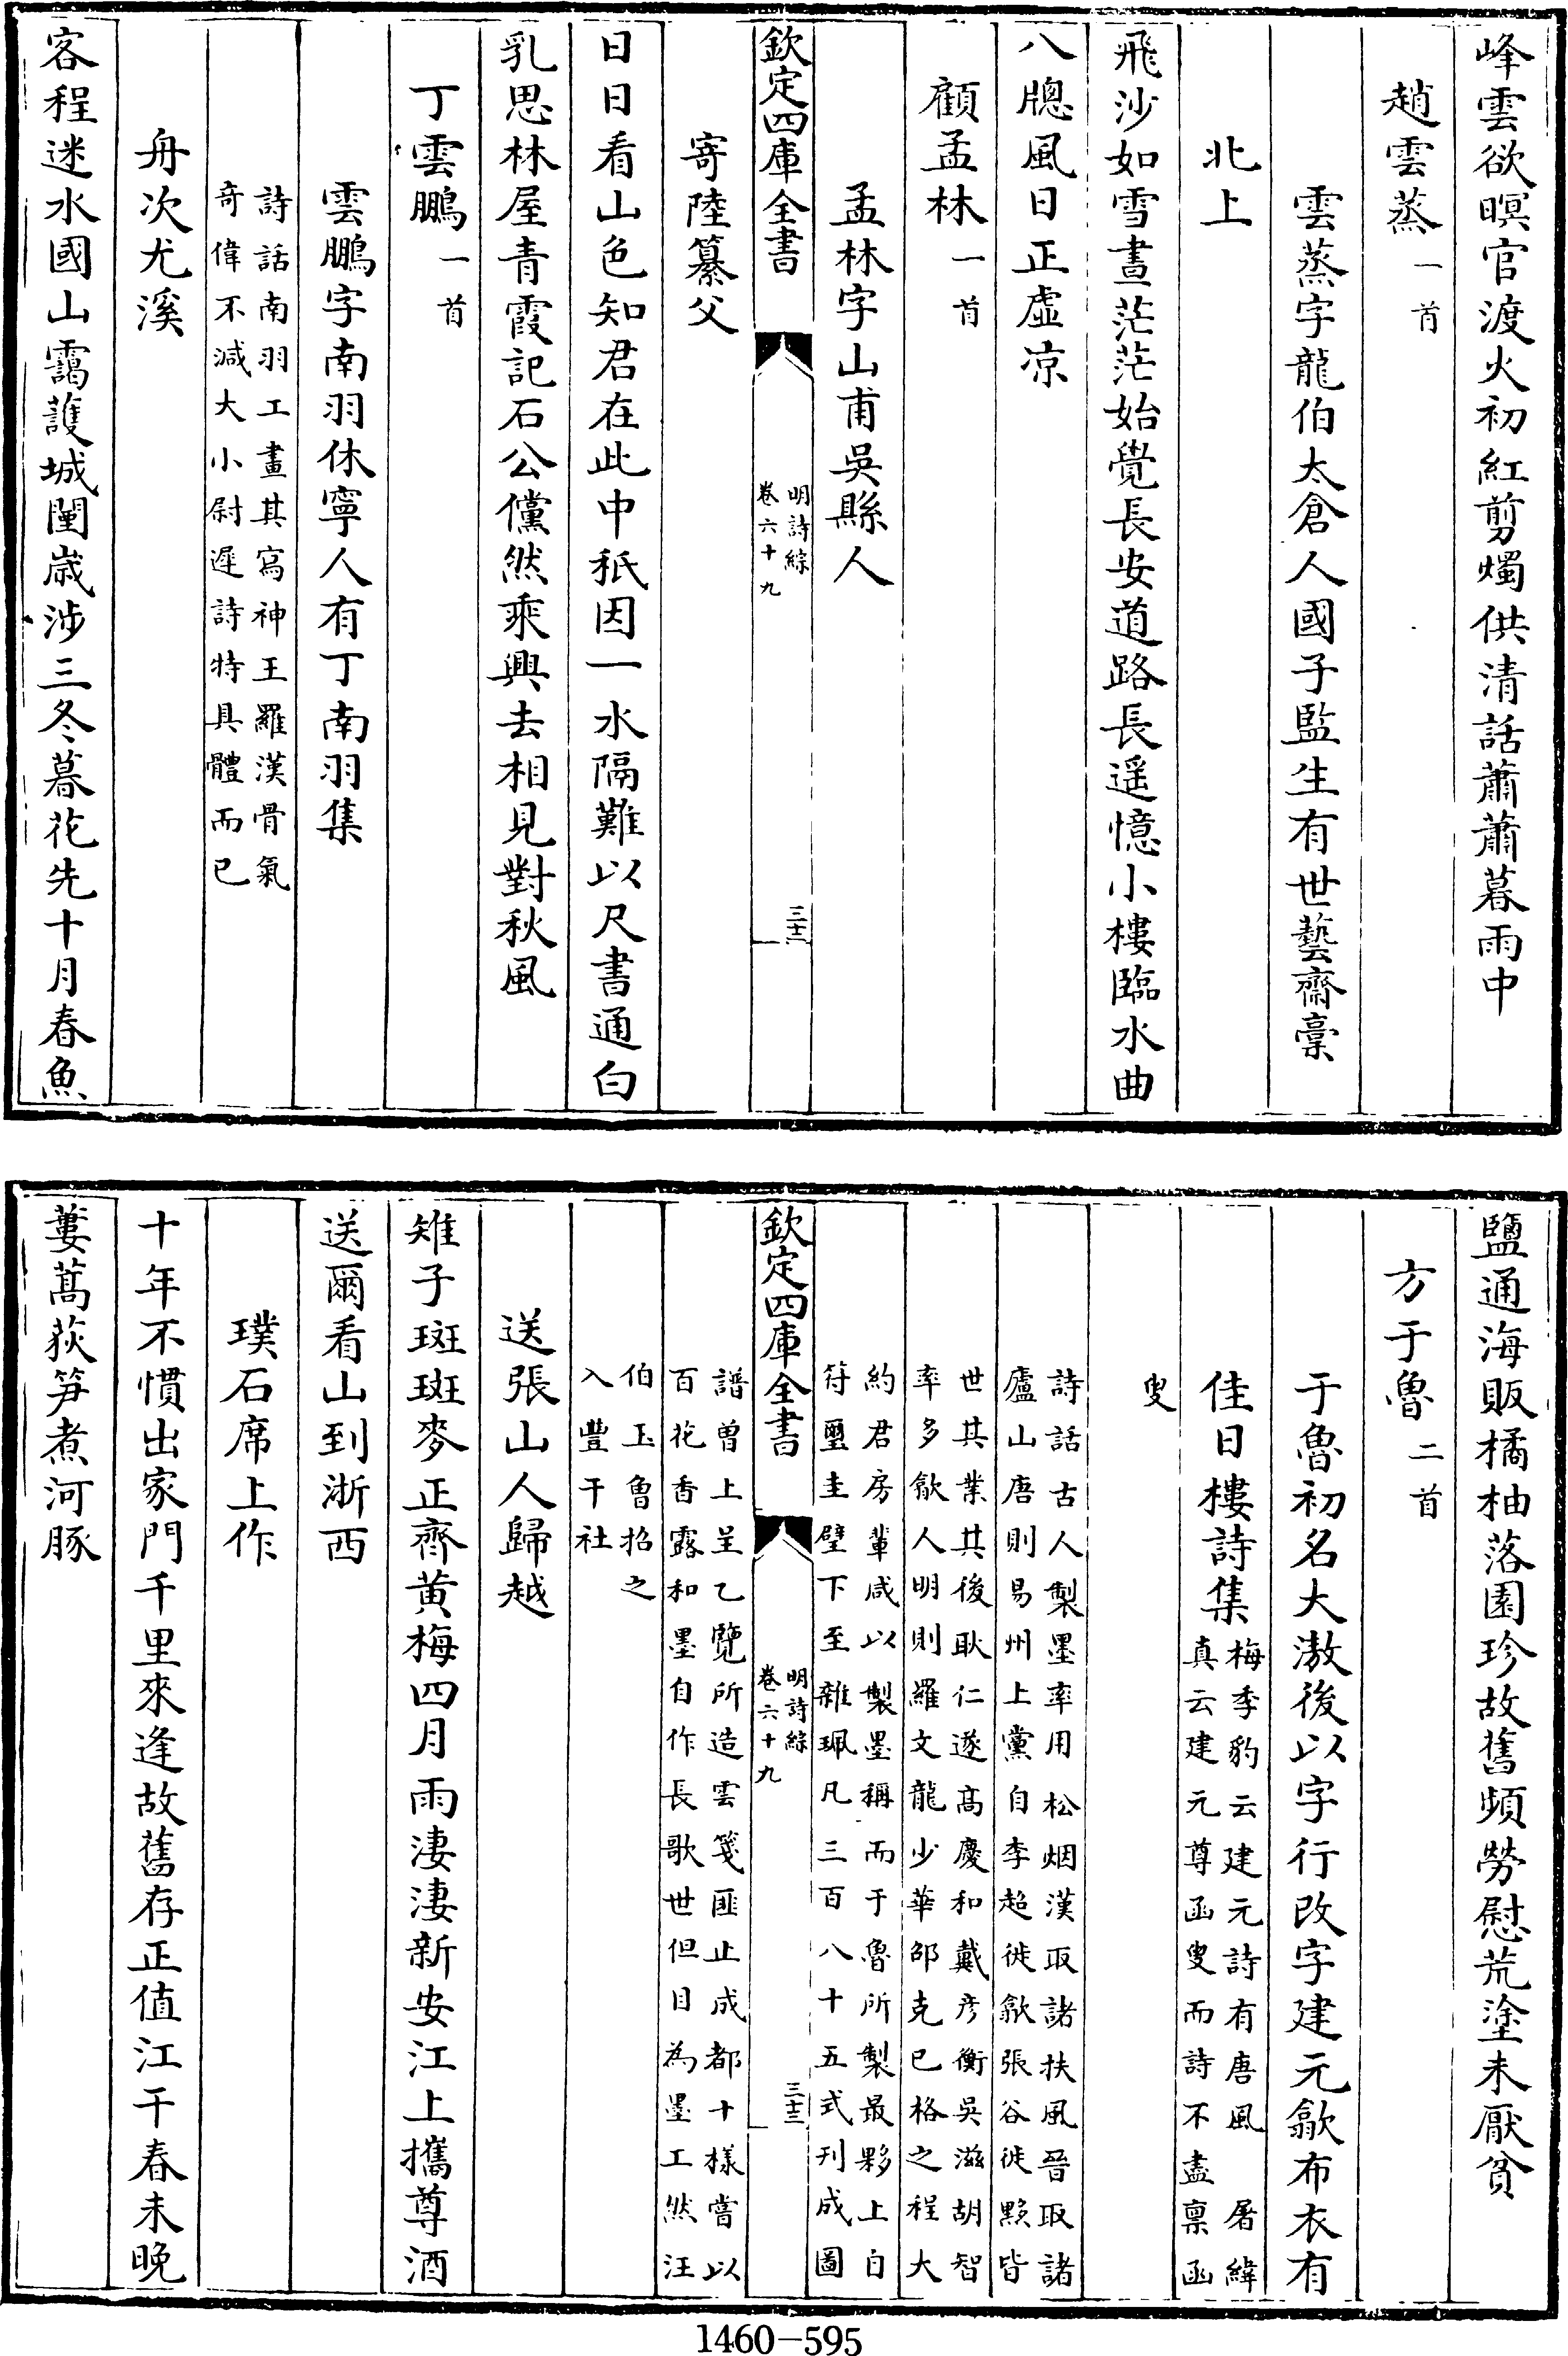 峰雲欲暝官渡火初紅剪燭供清話蕭蕭暮雨中
趙雲蒸一首
雲蒸字龍伯太倉人國子監生有世藝齋稾
北上
飛沙如雪晝茫茫始覺長安道路長遥憶小樓臨水曲
八牕風日正虛凉
顧孟林一首
孟林字山甫吳縣人
欽定四庫全書
明詩綜
卷六十九
三十二
寄陸纂父
日日看山色知君在此中秖因一水隔難以尺書通白
乳思林屋青霞記石公儻然乘興去相見對秋風
丁雲鵬一首
雲鵬字南羽休寧人有丁南羽集
詩話南羽工畫其寫神王羅漢骨氣
奇偉不減大小尉遲詩特具體而已
舟次尤溪
客程迷水國山靄護城闉歲涉三冬暮花先十月春魚
鹽通海販橘柚落園珍故舊頻勞慰荒塗未厭貧
方于魯二首
于魯初名大滶後以字行改字建元歙布衣有
佳日樓詩集
梅季豹云建元詩有唐風 屠緯
真云建元尊函叟而詩不盡禀函
叟
詩話古人製墨率用松烟漢取諸扶風晉取諸
廬山唐則易州上黨自李超徙歙張谷徙黟皆
世其業其後耿仁遂高慶和戴彥衡吳滋胡智
率多歙人明則羅文龍少華邵克已格之程大
約君房輩咸以製墨稱而于魯所製最夥上自
符璽圭璧下至雜珮凡三百八十五式刋成圖
欽定四庫全書
明詩綜
卷六十九
三十三
譜曽上呈乙覽所造雲箋匪止成都十樣嘗以
百花香露和墨自作長歌世但目為墨工然汪
伯玉魯招之
入豐干社
送張山人歸越
雉子斑斑麥正齊黄梅四月雨淒淒新安江上攜尊酒
送爾看山到浙西
璞石席上作
十年不慣出家門千里來逢故舊存正值江干春未晚
蔞蒿荻笋煮河豚
1460-595